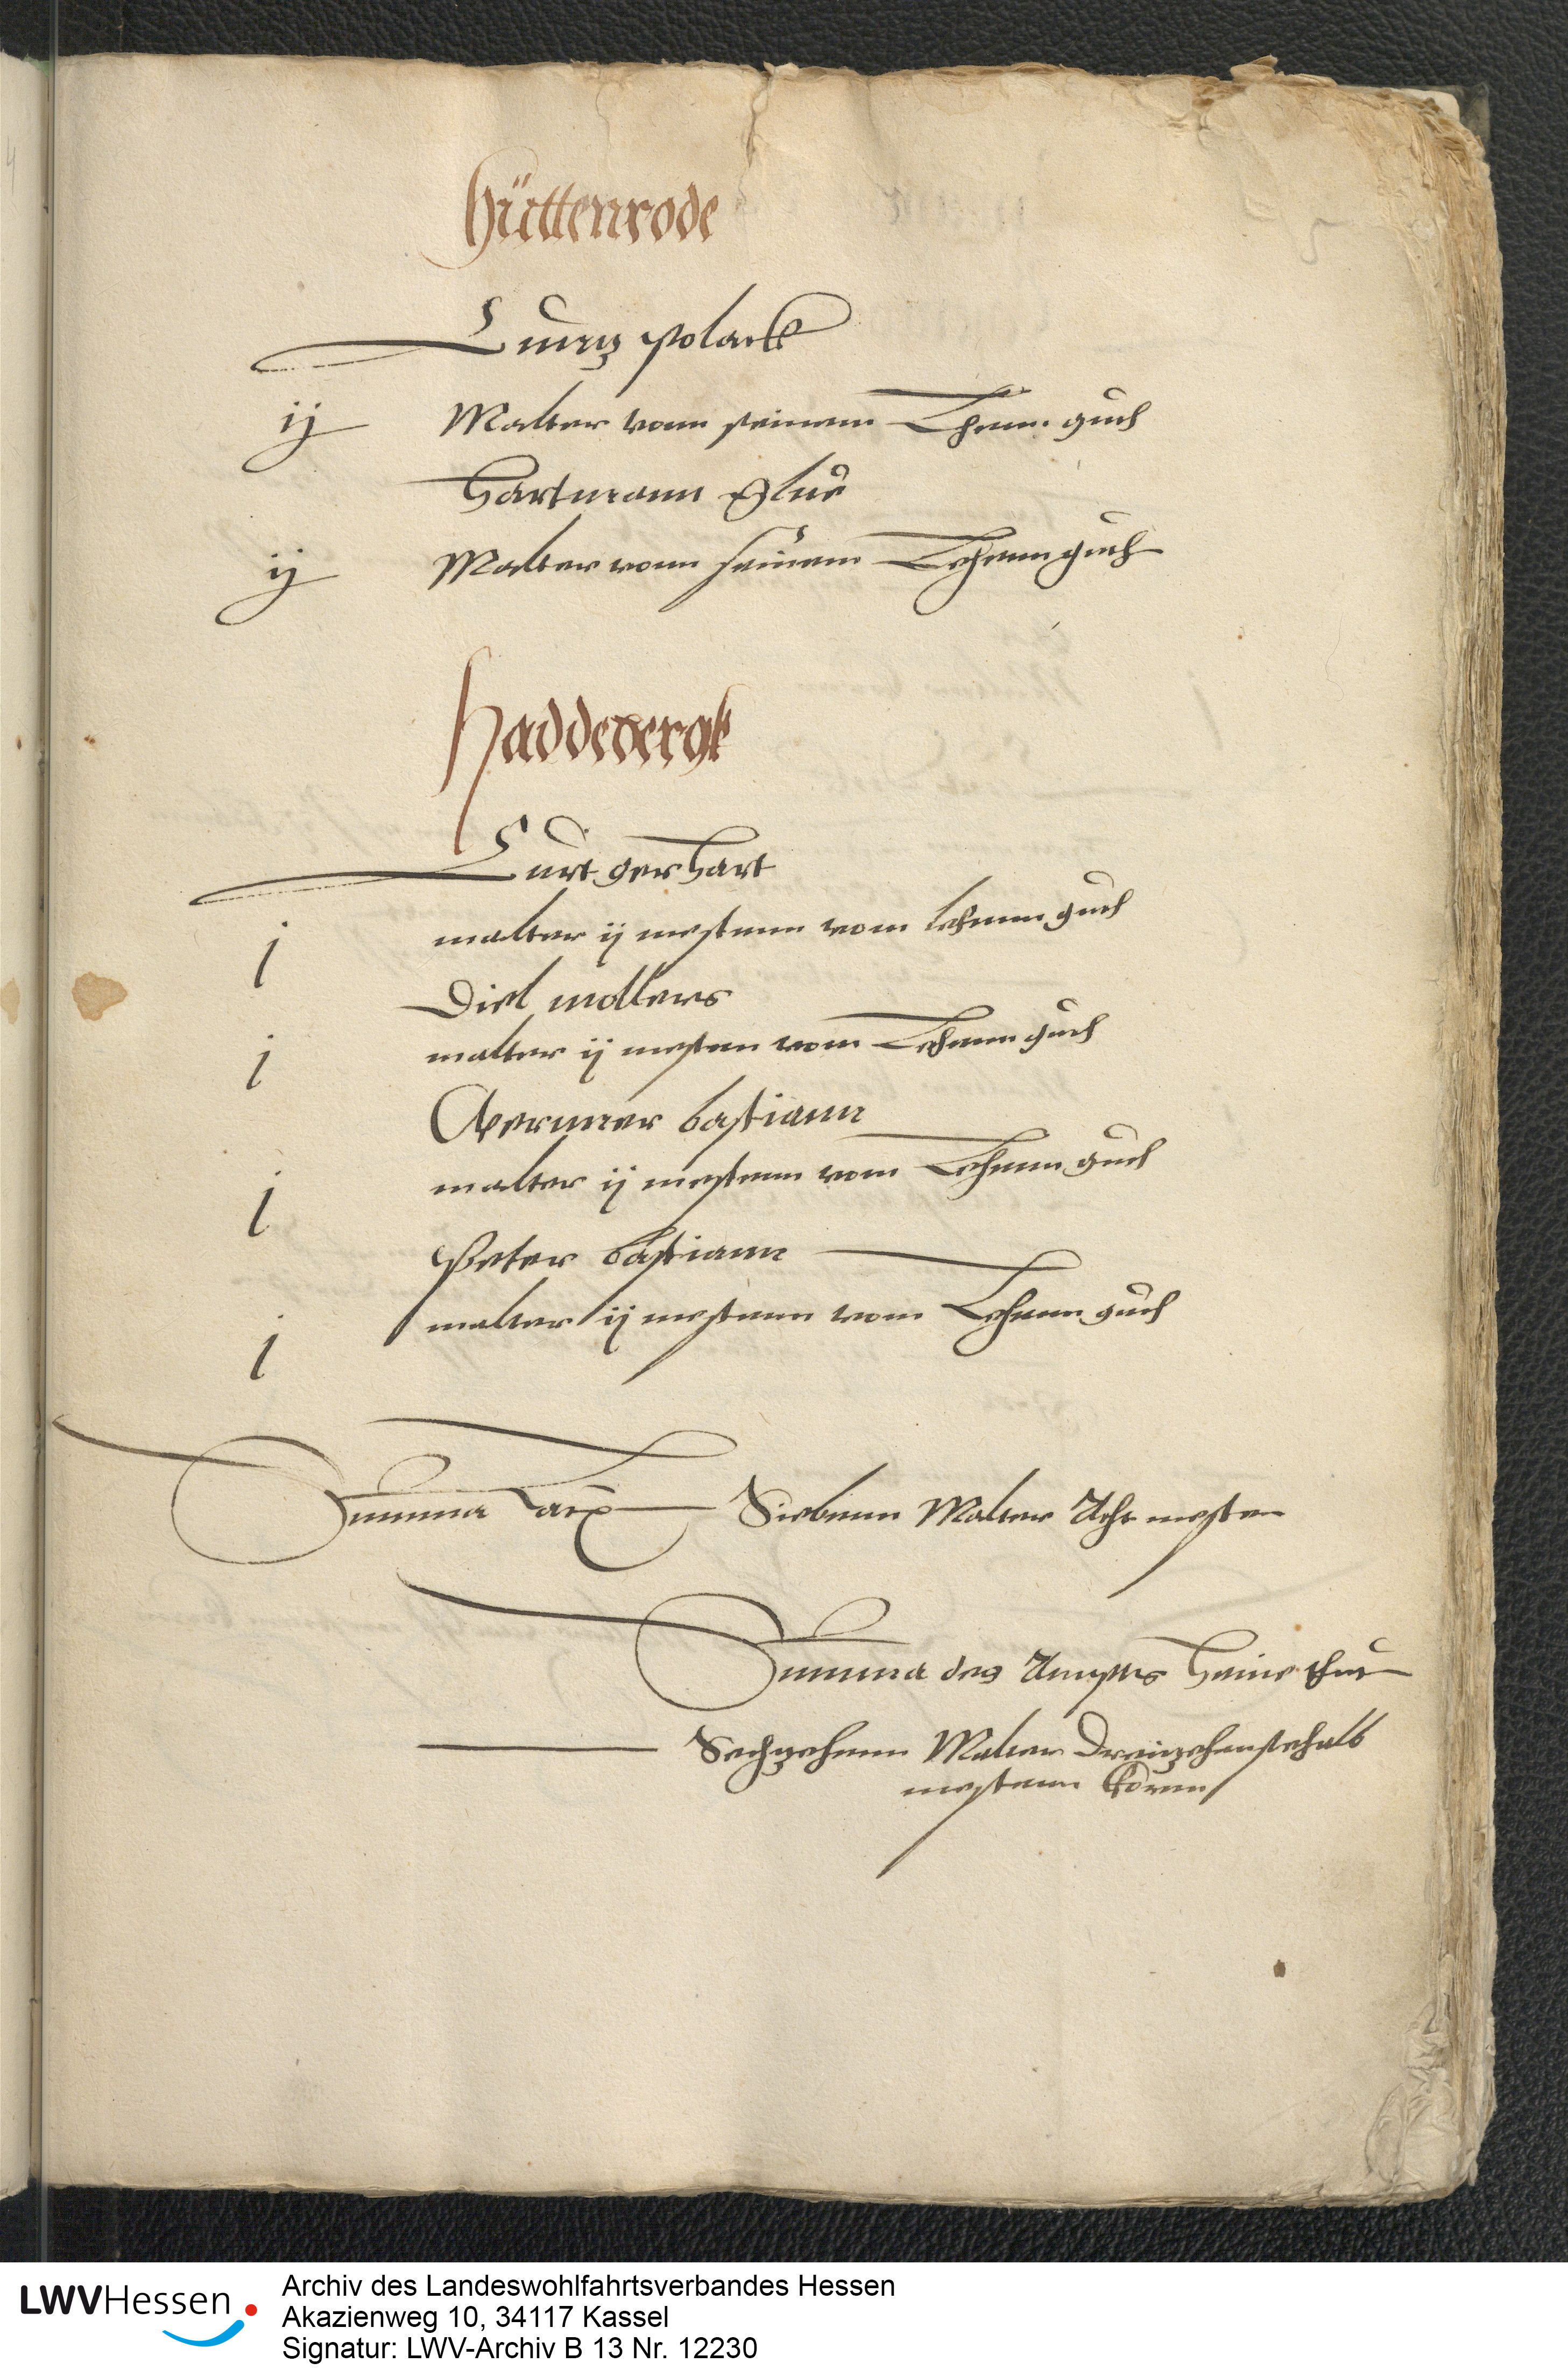 5
Hüttenrode
Cuntz Polack
ij Malter vonn seinem Lehenn guth
Hartmann
ij Malter vonn seinem Lehenn guth
Haddebergk
Curt gerhart
j malter ij mestenn vom lehenn guth
Diel mollers
j malter ij mesten vom Lehenn guth
Wernner bastiann
j malter ij mestenn vom Lehenn guth
Peter bastiann
j malter ij mestenn vom Lehenn guth
Summa Siebenn Malter Acht mesten
Summa des Ampts Heine thut
Sechzehenn Malter Dreizehenstehalb
mestenn korn
LWVHessen
Archiv des Landeswohlfahrtsverbandes Hessen
Akazienweg 10, 34117 Kassel
Signatur: LWV-Archiv B 13 Nr. 12230